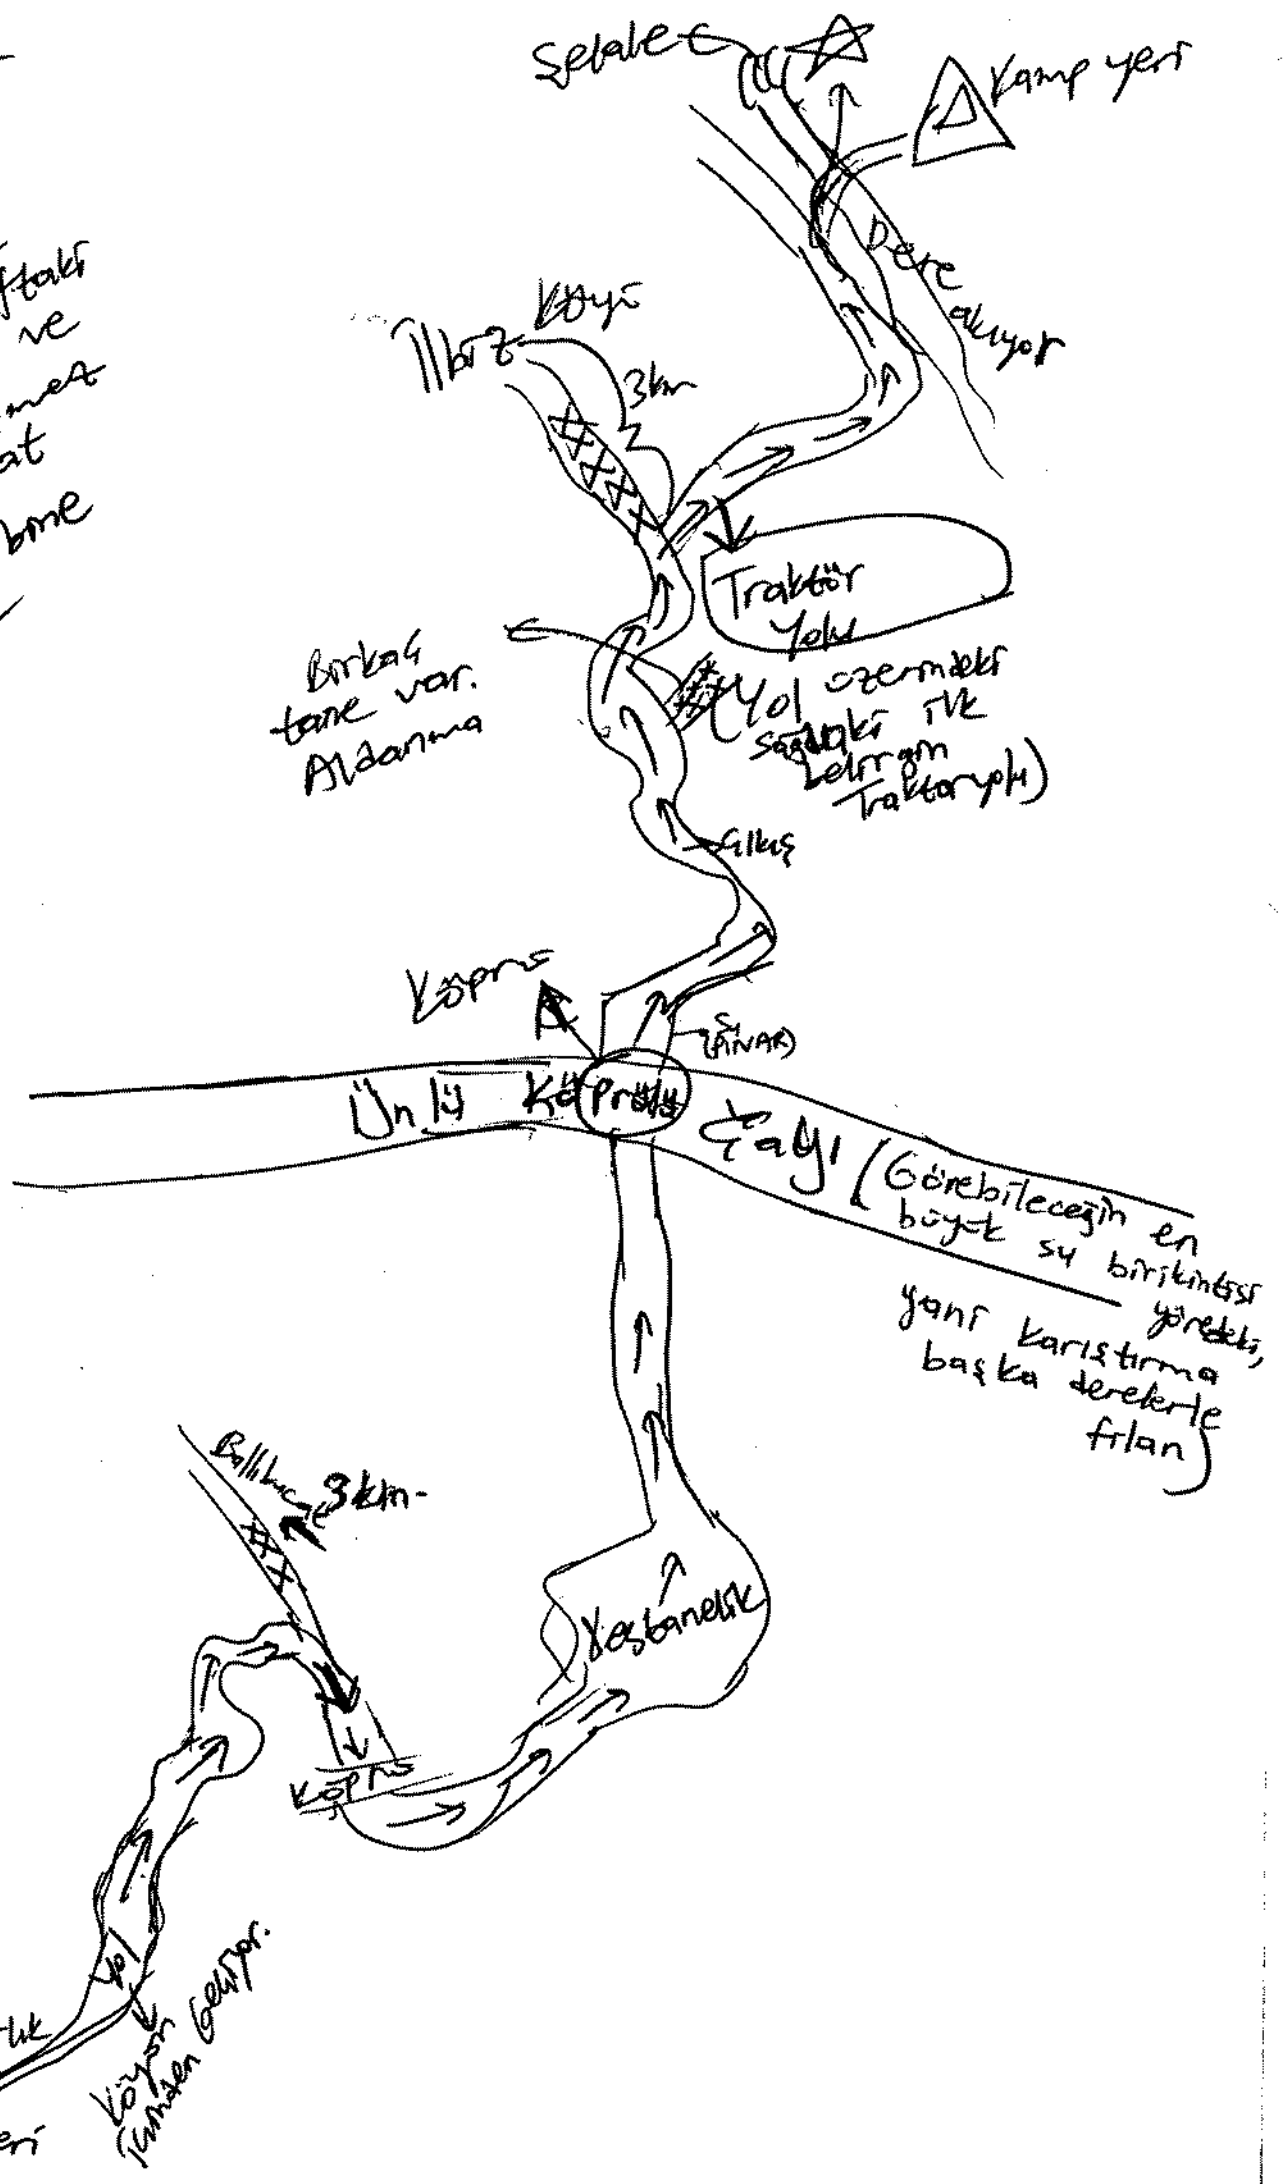 Şelale
Kamp yeri
Dere
akıyor
ve
at
bine
Köyü
3km
Traktör
yolu
Birkaç
tane var.
Aldanma
(Yol üzerindeki
sağdaki ilk
belirgin
Traktör yolu)
Çıkış
Köprü
(PINAR)
Ünlü Köprülü Çayı (Görebileceğin en
büyük su birikintisi
yöredeki,
yani karıştırma
başka derelerle
filan)
3km.
Kestanelik
Köprü
Yol
Köyün
içinden Geliyor.